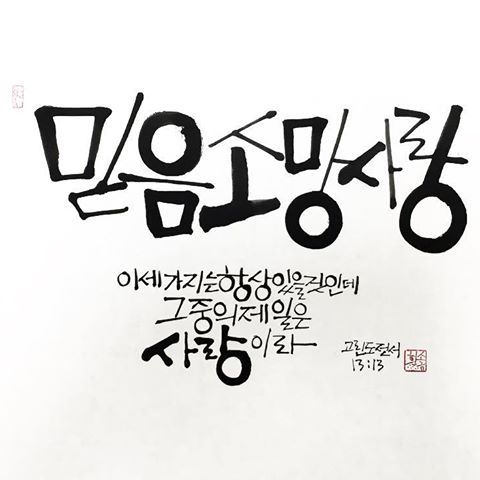 믿음소망사랑
이세가지는항상있을것인데
그중의제일은
사랑이라
고린도전서
13:13